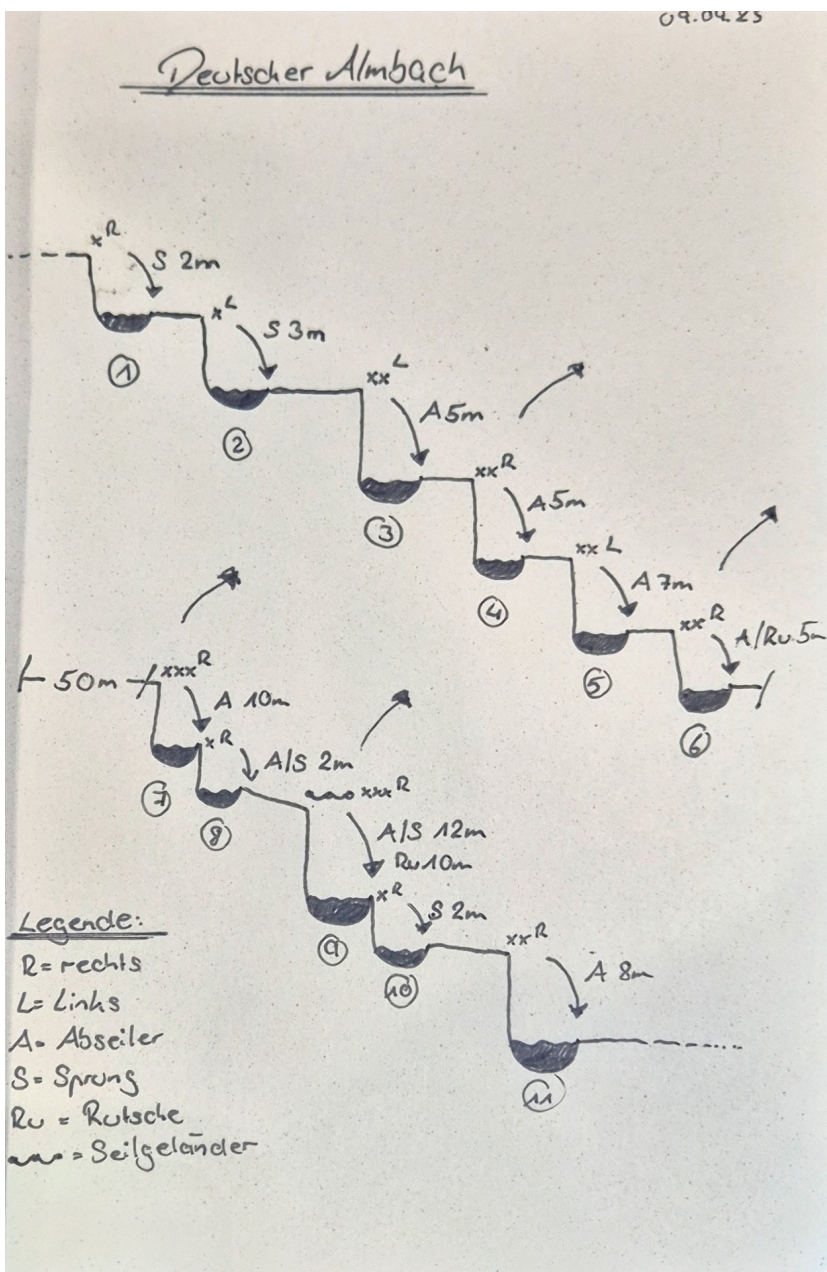 09.04.25
Deutscher Almbach
x R
S 2m
1
x L
S 3m
2
xx L
A 5m
3
xx R
A 5m
4
xx L
A 7m
5
xx R
A/Ru 5m
6
50m
xxx R
A 10m
7
x R
A/S 2m
8
xxx R
A/S 12m
Ru 10m
9
x R
S 2m
10
xx R
A 8m
11
Legende:
R = rechts
L = Links
A = Abseiler
S = Sprung
Ru = Rutsche
= Seilgeländer